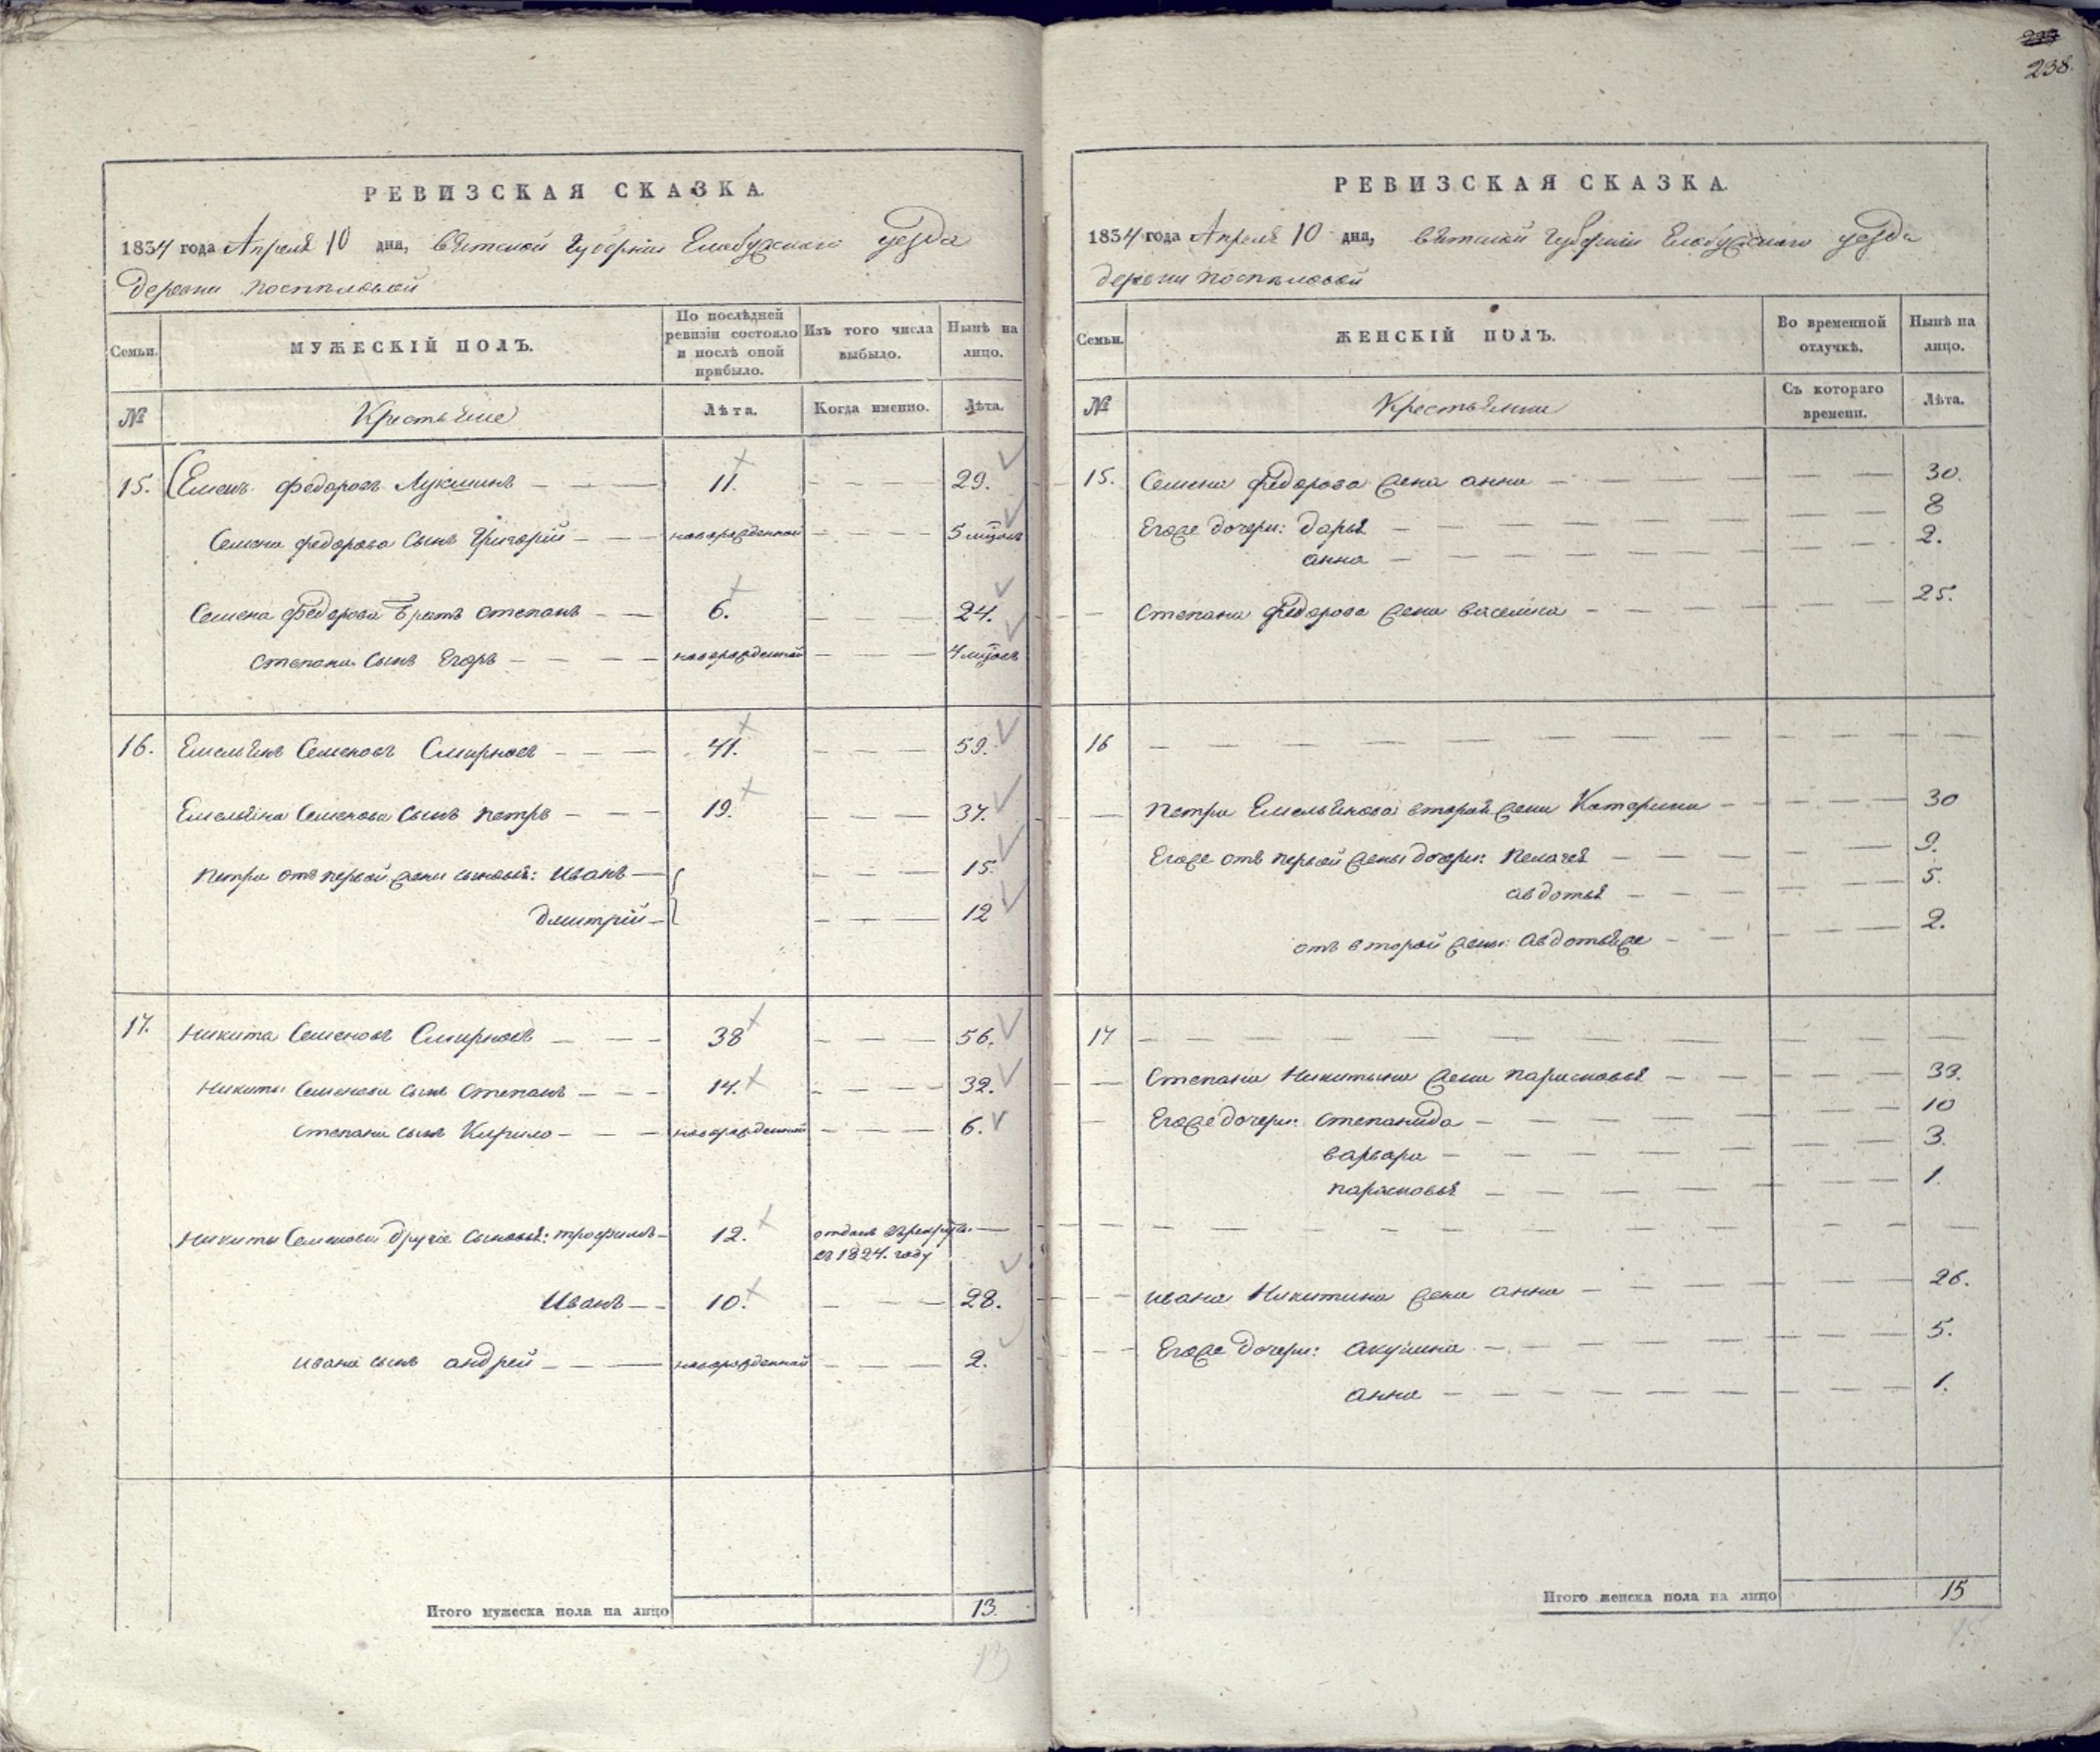 238.
РЕВИЗСКАЯ СКАЗКА.
1834 года Апреля 10 дня, Вятской губернии Елабужскаго уезда
деревни Поспеловой
Семьи. МУЖЕСКІЙ ПОЛЪ. По послѣдней ревизіи состояло и послѣ оной прибыло. Изъ того числа выбыло. Нынѣ на лицо.
№ Крестьяне Лѣта. Когда именно. Лѣта.
15. Семенъ Федоровъ Лукшинъ 11. 29.
Семена Федорова сынъ Григорій новорожденной 5 мцовъ
Семена Федорова братъ Степанъ 6. 24.
Степана сынъ Егоръ новорожденной 4 мцовъ
16. Емельянъ Семеновъ Смирновъ 41. 59.
Емельяна Семенова сынъ Петръ 19. 37.
Петра отъ первой жены сыновья: Иванъ 15
Дмитрій 12
17. Никита Семеновъ Смирновъ 38 56.
Никиты Семенова сынъ Степанъ 14. 32.
Степана сынъ Кирило новорожденной 6.
Никиты Семенова другіе сыновья: Трофимъ 12. отданъ въ рекруты
въ 1824. году
Иванъ 10. 28.
Ивана сынъ Андрей новорожденной 2.
Итого мужеска пола на лицо 13.
13
РЕВИЗСКАЯ СКАЗКА.
1834 года Апреля 10 дня, Вятской губернии Елабужскаго уезда
деревни Поспеловой
Семьи. ЖЕНСКІЙ ПОЛЪ. Во временной отлучкѣ. Нынѣ на лицо.
№ Крестьянки Съ котораго времени. Лѣта.
15. Семена Федорова жена Анна 30.
Егоже дочери: Дарья 8
Анна 2.
Степана Федорова жена Васелиса 25.
16
Петра Емельянова вторая жена Катерина 30
Егоже отъ первой жены дочери: Пелагея 9.
Авдотья 5.
отъ второй жены: Авдотьяже 2.
17
Степана Никитина жена Парасковья 33.
Егоже дочери: Степанида 10
Варвара 3.
Парасковья 1.
Ивана Никитина жена Анна 26.
Егоже дочери: Акулина 5.
Анна 1.
Итого женска пола на лицо 15
15